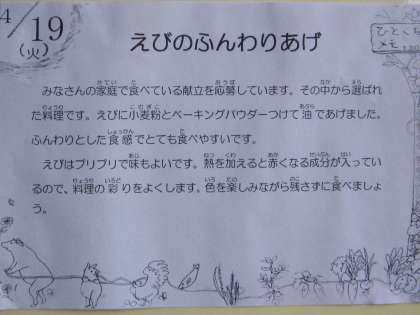 4/19
(火)
えびのふんわりあげ
ひとくち
メモ
みなさんの家庭で食べている献立を応募しています。その中から選ばれ
た料理です。えびに小麦粉とベーキングパウダーつけて油であげました。
ふんわりとした食感でとても食べやすいです。
えびはプリプリで味もよいです。熱を加えると赤くなる成分が入ってい
るので、料理の彩りをよくします。色を楽しみながら残さずに食べましょ
う。